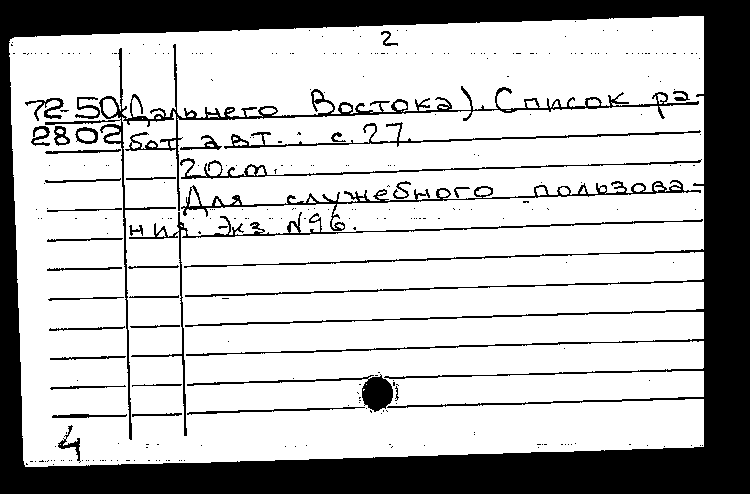 2
72-50k Дальнего Востока). Список ра-
2802 бот авт.: с. 27.
20cm.
Для служебного пользова-
ния. Экз. N96.
4